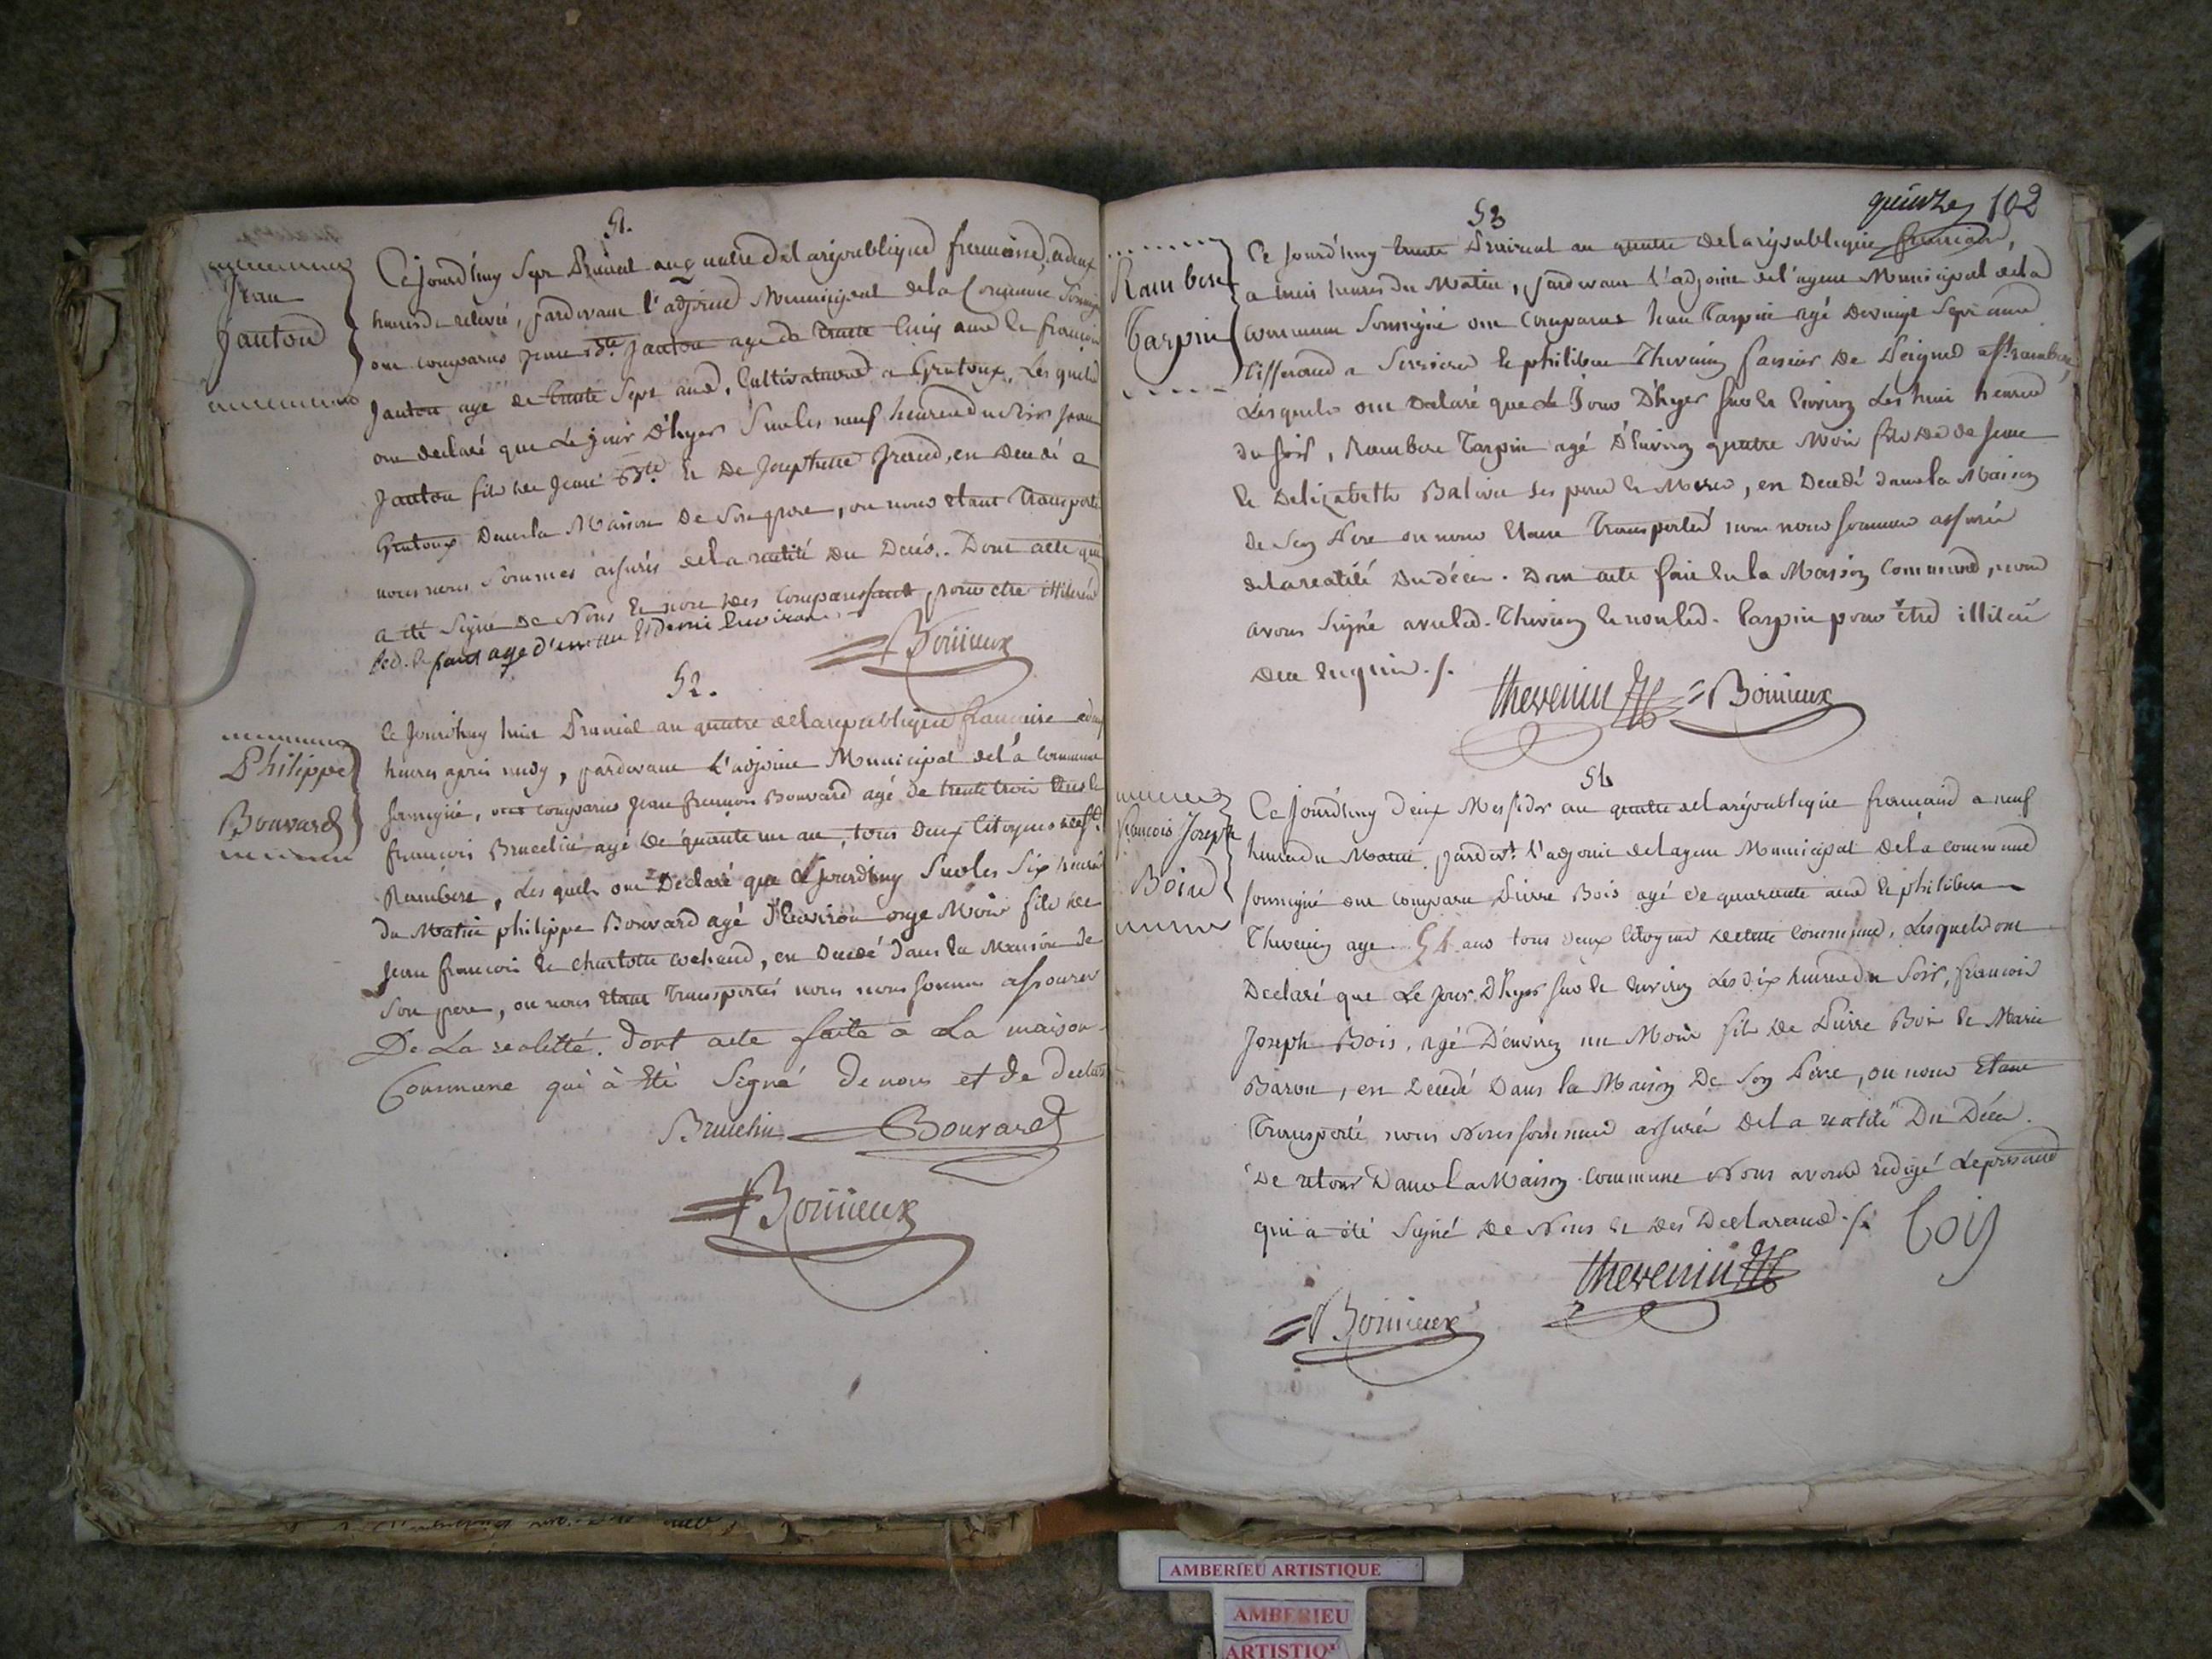 51.
Jean
Jantond
Ce jourd'huy sept Prairial an quatre de la republique francaise, a deux
heures de relevée, pardevant l'adjoint Municipal de la Commune soussigné
ont comparus Jean Bte Janton agé de trente cinq ans et francois
Janton agé de trente sept ans, Cultivateurs a Grutoux, Lesquels
ont declaré que Le jour D'hyer Sur les neuf heures du soir Jean
Janton fils de Jean Bte et De Josephette, en Decedé a
Grutoux Dans la Maison De Son pere, ou nous etant Transportés
nous nous Sommes assurés de la realité du Decés. Dont acte qui
a été Signé De Nous et non des Comparessant, pour etre illiterés
led. Janton agé d'un an et Demi Environ
Bonieux
52.
Philippe
Bouvard
Ce jourd'huy huit Prairial an quatre de la republique francaise a deux
heures après midy, pardevant L'adjoint Municipal de la Commune
soussigné, ont comparus Jean francois Bouvard agé de trente trois ans et
francois Bruchin agé de quarante un an, tous deux Citoyens de St
Rambert, Lesquels ont Declaré que Cejourd'huy Sur les Six heures
du Matin philippe Bouvard agé d'Environ onze Mois fils de
Jean francois et charlotte cochand, en Decedé Dans la Maison de
Son pere, ou nous etant Transportés nous nous sommes assourer
De La realitté. Dont acte faite a La maison
Commune qui à été Signé de nous et de declar
Bruchin Bouvard
Bonieux
quinze 102
53
Rambert
Tarpin
Ce jourd'huy trente Prairial an quatre de la république francaise,
a huit heures du Matin, pardevant l'adjoint de l'agent Municipal de la
commune Soussigné ont Comparus Jean Tarpin agé De vingt Sept ans
Tisserand a Serrieres et philibert Thevenin faiseur De Peignes a St rambert,
Lesquels ont Declaré que Le Jour D'hyer sur les Environ Les huit heures
du soir, Rambert Tarpin agé D'Environ quatre Mois fils de Jean
et D'elizabeth Balivet ses pere et Mere, en Decedé dans la Maison
de Son Pere ou nous Etant Transportés nous nous sommes assurés
de la realité Du décés. Dont acte fait En la Maison Commune, nous
avons Signé avec led. Thevenin et non led. Tarpin pour être illiteré
De ce Enquis./.
thevenin Bonieux
54
francois Joseph
Boisd
Ce jourd'huy deux Messidor an quatre de la république francaise a neuf
heures du Matin pardevt. l'adjoint de l'agent Municipal de la commune
soussigné ont comparu Pierre Bois agé de quarante ans et philibert
Thevenin agé 54 ans tous deux Citoyens de cette Commune, Lesquels ont
Declaré que Le jour D'hyer sur les Environ Les dix heures du Soir, francois
Joseph Bois, agé D'environ un Mois fils De Pierre Bois et Marie
Baron, en Decedé Dans la Maison De Son Pere, ou nous Etant
Transporté nous Nous sommes assurés De La realité Du Décés.
De retour Dans La Maison Commune Nous avons redigé Le present
qui a été Signé De Nous et Des Declarants./.
bois
thevenin
Bonieux
AMBERIEU ARTISTIQUE
AMBERIEU
ARTISTIQ